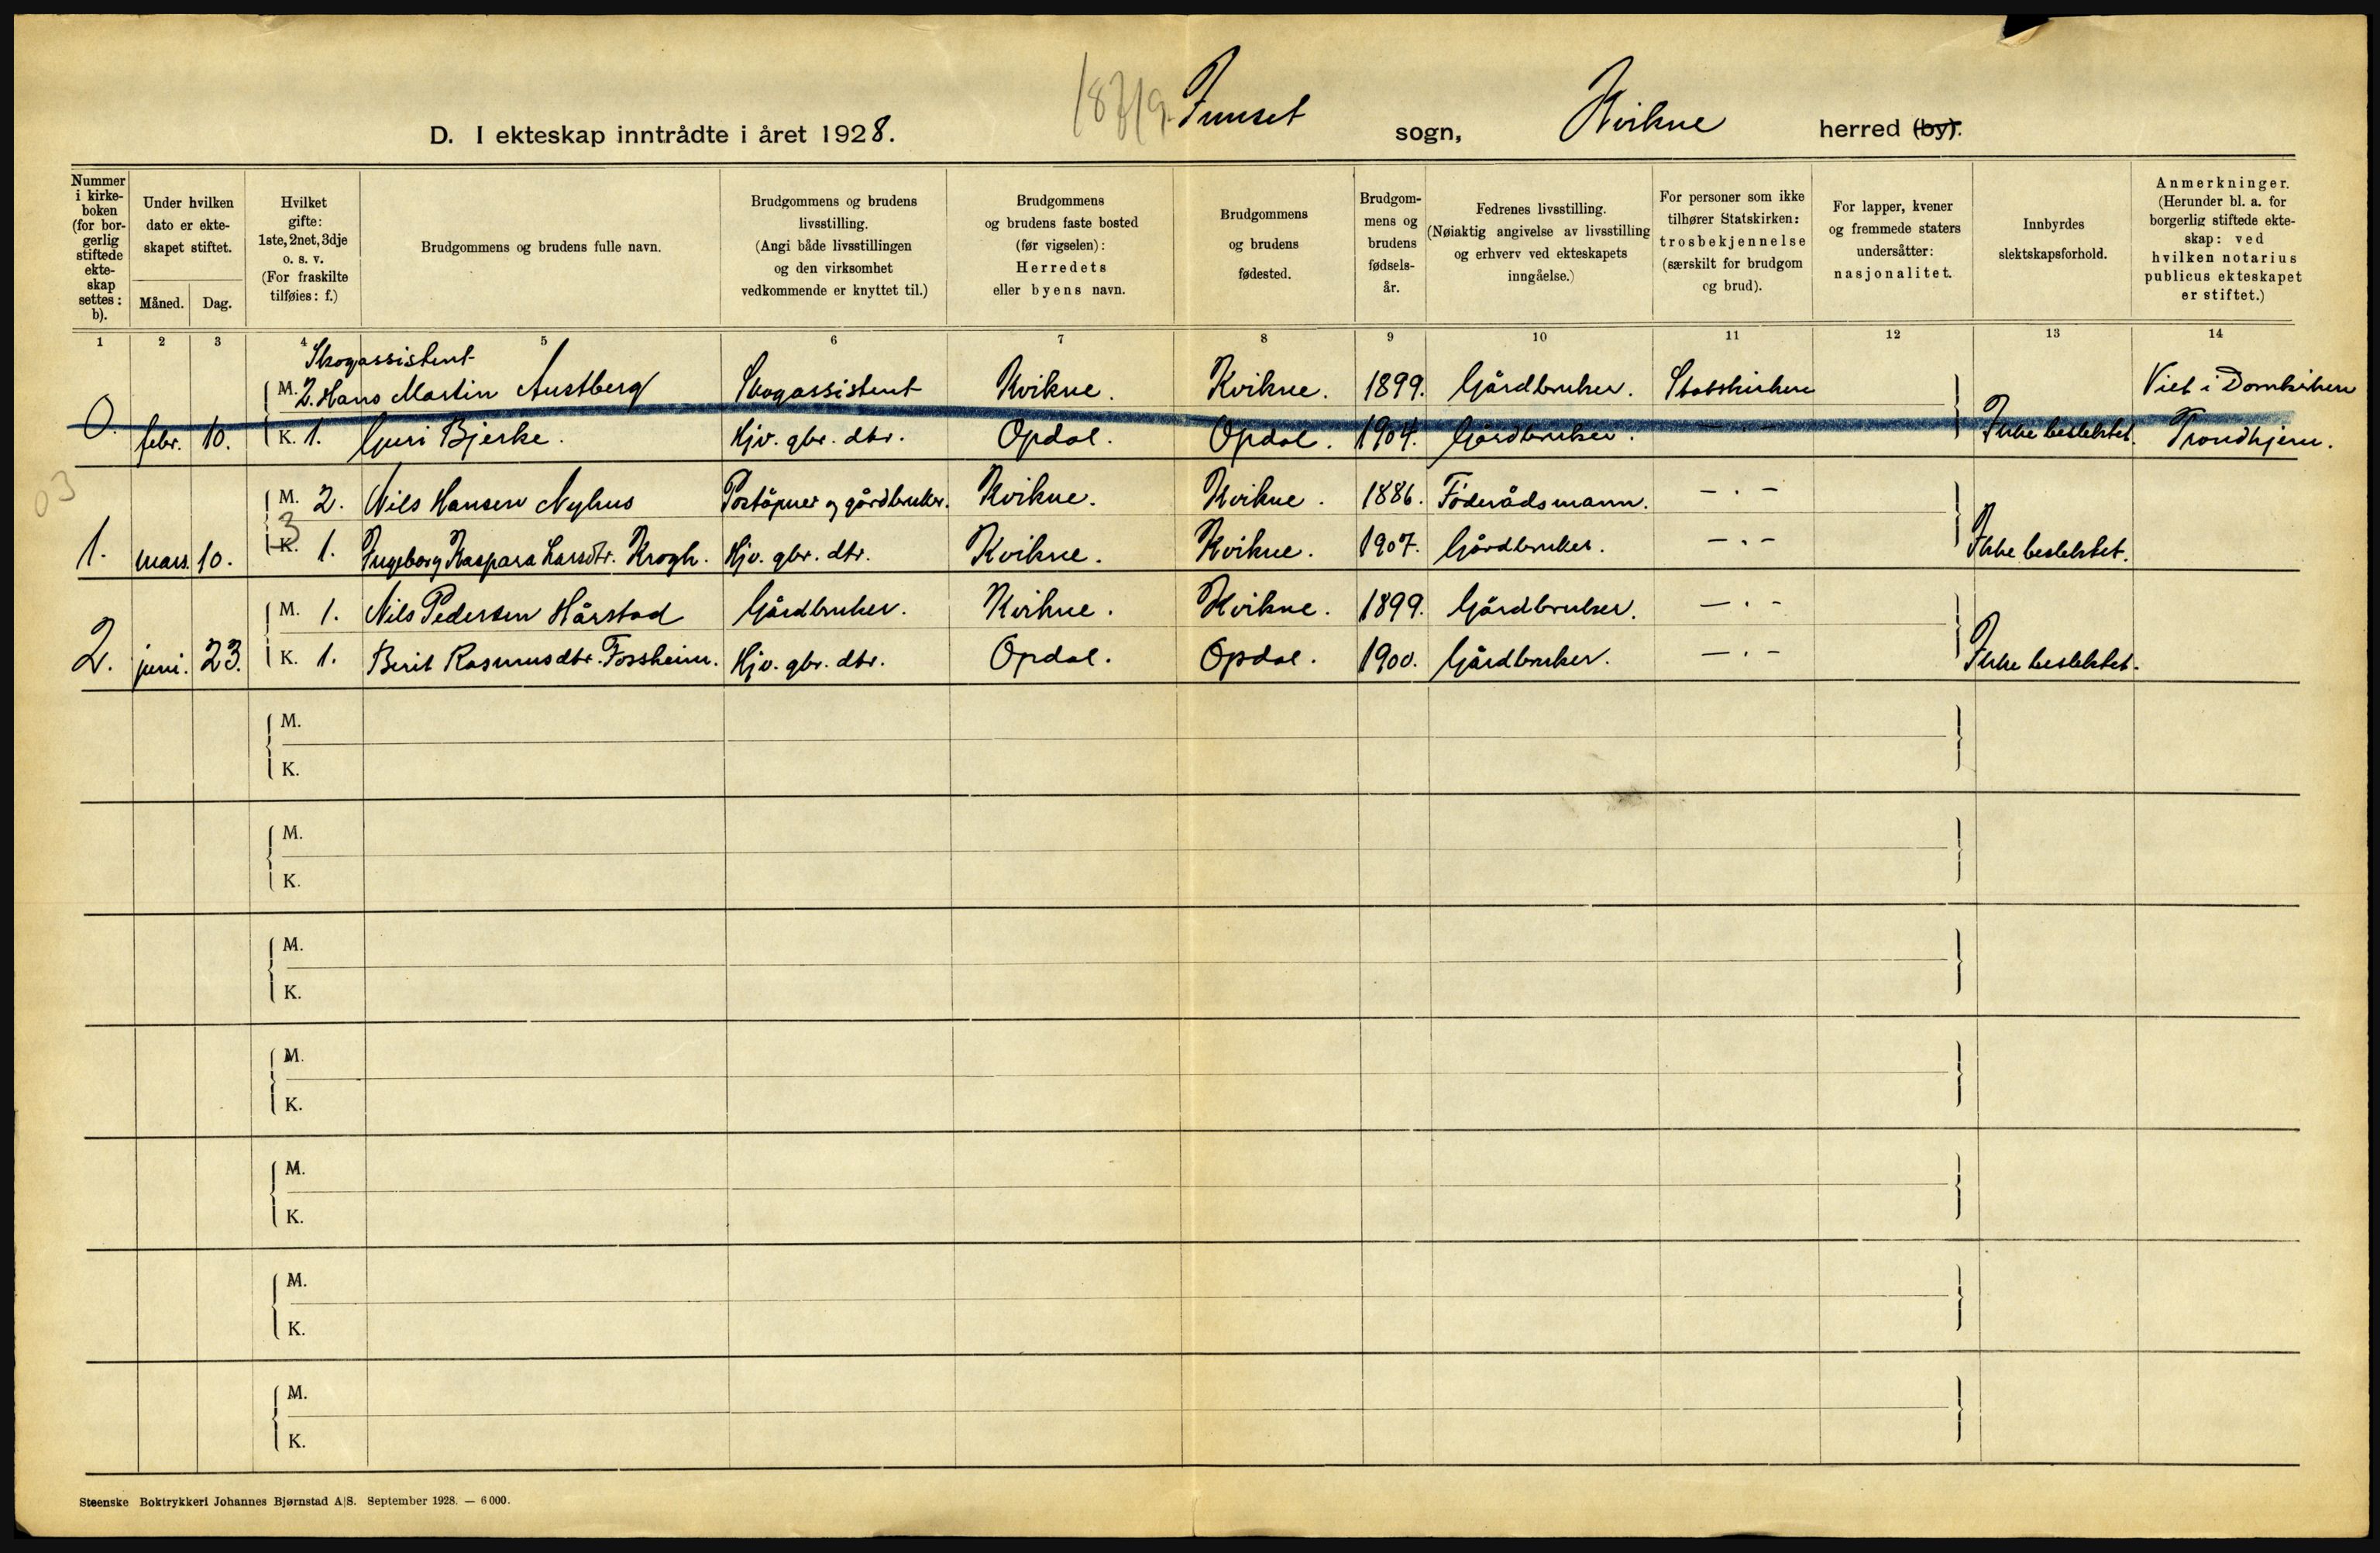 D. I ekteskap inntrådte i året 1928. Innset sogn, Kvikne herred (by).
Nummer i kirke-boken (for bor-gerlig stiftede ekte-skap settes: b).
Under hvilken dato er ekte-skapet stiftet.
Måned. Dag.
Hvilket gifte: 1ste, 2net, 3dje o. s. v. (For fraskilte tilføies: f.)
Brudgommens og brudens fulle navn.
Brudgommens og brudens livsstilling. (Angi både livsstillingen og den virksomhet vedkommende er knyttet til.)
Brudgommens og brudens faste bosted (før vigselen): Herredets eller byens navn.
Brudgommens og brudens fødested.
Brudgom-mens og brudens fødsels-år.
Fedrenes livsstilling. (Nøiaktig angivelse av livsstilling og erhverv ved ekteskapets inngåelse.)
For personer som ikke tilhører Statskirken: trosbekjennelse (særskilt for brudgom og brud).
For lapper, kvener og fremmede staters undersåtter: nasjonalitet.
Innbyrdes slektskapsforhold.
Anmerkninger. (Herunder bl. a. for borgerlig stiftede ekte-skap: ved hvilken notarius publicus ekteskapet er stiftet.)
1 2 3 4 5 6 7 8 9 10 11 12 13 14
Skogassistent
M. 2. Hans Martin Austberg Skogassistent Kvikne. Kvikne. 1899. Gårdbruker. Statskirken Viet i Domkirken
0. febr. 10. K. 1. Guri Bjerke. Hjv. gbr. dtr. Opdal. Opdal. 1904. Gårdbruker. - . - Ikke beslektet. Trondhjem.
03
M. 2. Nils Hansen Nyhus Poståpner og gårdbruker. Kvikne. Kvikne. 1886. Føderådsmann. - . -
3
1. mars. 10. K. 1. Ingeborg Kaspara Larsdtr. Krogh. Hjv. gbr. dtr. Kvikne. Kvikne. 1907. Gårdbruker. - . - Ikke beslektet.
M. 1. Nils Pedersen Hårstad Gårdbruker. Kvikne. Kvikne. 1899. Gårdbruker. - . -
2. juni. 23. K. 1. Berit Rasmusdtr. Fossheim. Hjv. gbr. dtr. Opdal. Opdal. 1900. Gårdbruker. - . - Ikke beslektet.
M.
K.
M.
K.
M.
K.
M.
K.
M.
K.
M.
K.
M.
K.
Steenske Boktrykkeri Johannes Bjørnstad A|S. September 1928. — 6000.